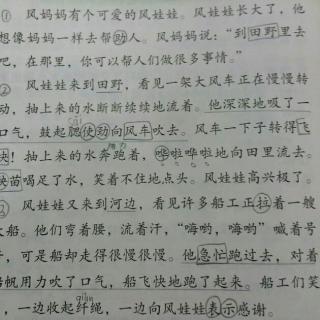 ① 风妈妈有个可爱的风娃娃。风娃娃长大了，他
想像妈妈一样去帮助人。风妈妈说：“到田野里去
吧，在那里，你可以帮人们做很多事情。”
② 风娃娃来到田野，看见一架大风车正在慢慢转
动，抽上来的水断断续续地流着。他深深地吸了一
口气，鼓起腮使劲向风车吹去。风车一下子转得飞
快！抽上来的水奔跑着，哗啦哗啦地向田里流去。
秧苗喝足了水，笑着不住地点头。风娃娃高兴极了。
② 风娃娃又来到河边，看见许多船工正拉着一艘
大船。他们弯着腰，流着汗，“嗨哟，嗨哟”喊着号
子，可是船却走得很慢很慢。他急忙跑过去，对着
船帆用力吹了口气，船飞快地跑了起来。船工们笑
了，一边收起纤绳，一边向风娃娃表示感谢。